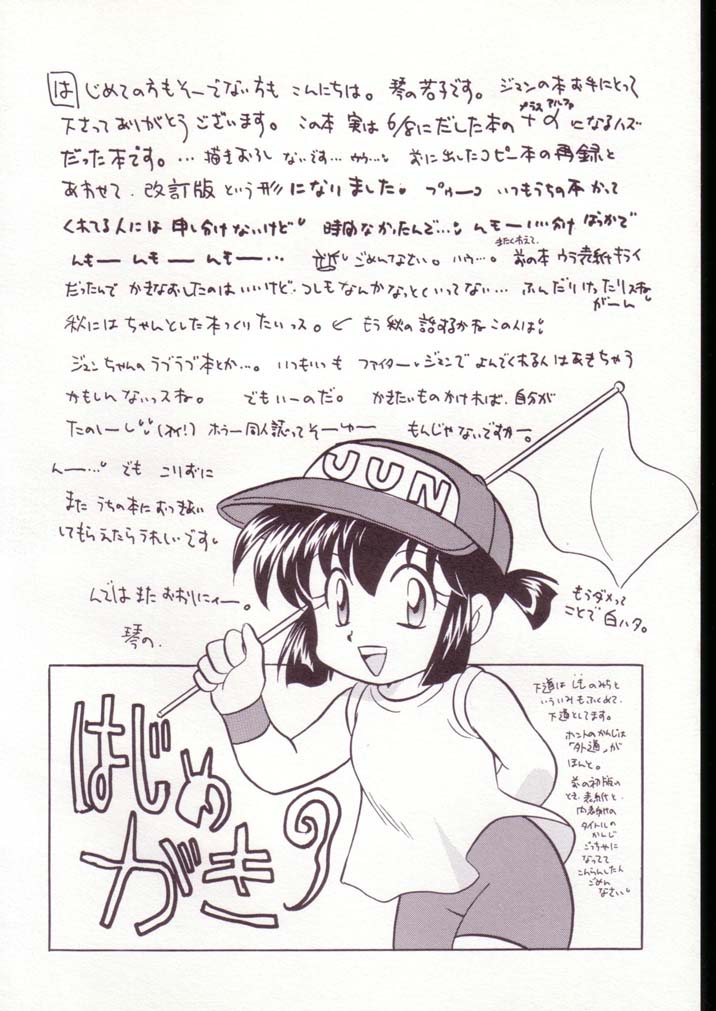 はじめての方もそーでない方も こんにちは。琴の若子です。ジュンの本お手にとって
下さってありがとうございます。この本 実は6/8にだした本の +α(プラスアルファ)になるハズ
だった本です。…描きおろし ないです…ウウ…。前に出したコピー本の再録と
あわせて、改訂版という形になりました。 いつもうちの本かって
くれてる人には申し分けないけど 時間なかったんで…。んもーいい分けばっかで
んもーー んもーー んもーー… ごめんなさい。ハウ…。前の本 ウラ表紙キライ
だったんで かきなおしたのはいいけど、つしもなんかなっとくいってない… ふんだりけったりスね
がーん
秋にはちゃんとした本つくりたいっス。 もう秋の話するかねこの人は
ジュンちゃんのラブラブ本とか…。いつもいつも ファイター・ジュンでよんでくれる人はあきちゃう
かもしんないっスね。 でもいーのだ。 かきたいものかければ、自分が
たのしーし(オイ!) ホラー同人誌ってそーゆー もんじゃないですかー。
んー… でも こりずに
また うちの本におつきあい
してもらえたらうれしいです
んではまたおおりにィー。
琴の.
JUN
もうダメって
ことで白ハタ。
はじめ
がき
下道は しものみちと
いういみもふくめて、
下道としてます。
ホントのかんじは
「外道」が
ほんと。
前の初版の
とき、表紙と、
内表紙の
タイトルの
かんじ
ごっちゃに
なってて
こんらんしたん
ごめん
なさい